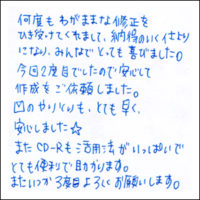 何度もわがままな修正を
ひき受けてくれまして、納得のいく仕上り
になり、みんなでとっても喜びました。
今回2度目でしたので安心して
作成をご依頼しました。
のやりとりも、とても早く、
安心しました☆
またCD-Rも活用法がいっぱいで
とても便利で助かります。
またいつか3度目よろしくお願いします。